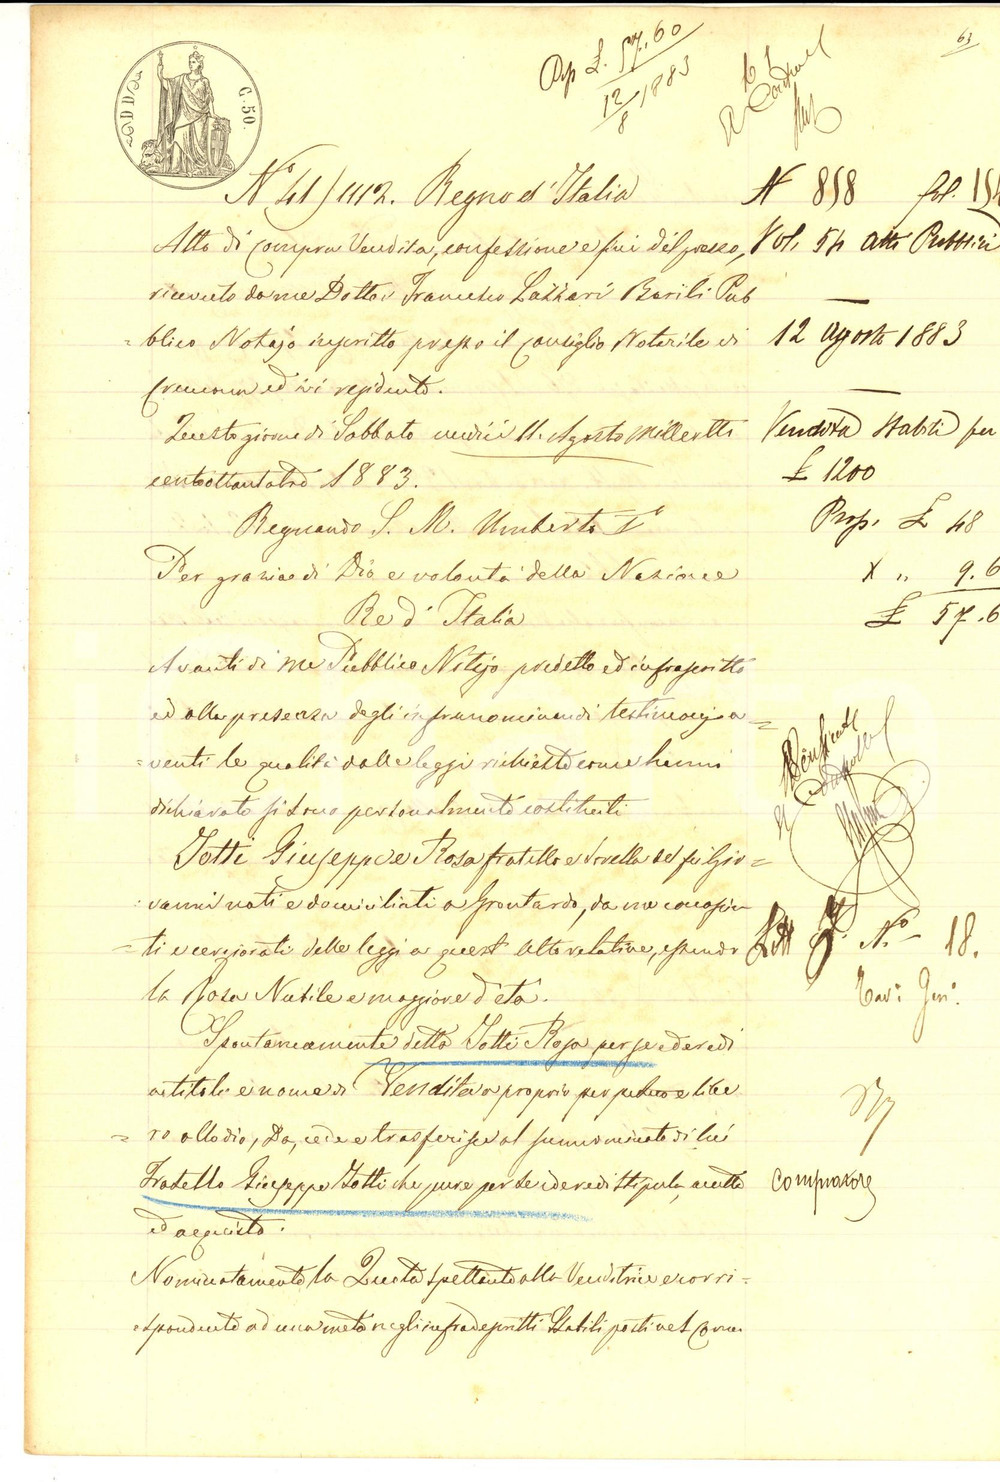 63
L. 57.60
12/8 1883
C. 50.
N° 41/1112. Regno d'Italia
Atto di Compra Vendita, confessione e fini del prezzo,
ricevuto da me Dottor Francesco Lazzari Barili Pub
=blico Notajo inscritto presso il Consiglio Notarile di
Cremona ed ivi residente.
Questo giorno di Sabbato undici 11. Agosto Milleotto
centottantatre 1883.
Regnando S. M. Umberto I°
Per grazia di Dio e volontà della Nazione
Re d'Italia
Avanti di me Pubblico Notajo predetto ed infrascritto
ed alla presenza degli infranominandi testimonj a=
=venti le qualità dalle leggi richieste come hanno
dichiarato si sono personalmente costituiti
Jotti Giuseppe e Rosa fratello e sorella del fu Gio=
vanni nati e domiciliati a Grontardo, da me conosciu
=ti e cerziorati delle leggi a quest'atto relative, essendo
la Rosa Nubile e maggiore d'età.
Spontaneamente detta Jotti Rosa per se ed eredi
a titolo e nome di Vendita a proprio per se e libe
=ro allodio, Da, cede e trasferisce al sunnominato di lei
Fratello Giuseppe Jotti che pure per se ed eredi stipula, accetta
ed acquista.
Nominatamente la Quota spettante alla Venditrice e corri=
=spondente ad una metà negli infradescritti Stabili posti nel Comu
N 898 fol. 154
Vol. 54 Atti Pubblici
12 Agosto 1883
Vendita Stabili per
£ 1200
Prop. £ 48
X " 9.6
£ 57.6
N.° 18.
Tav. Gen.
Compratore